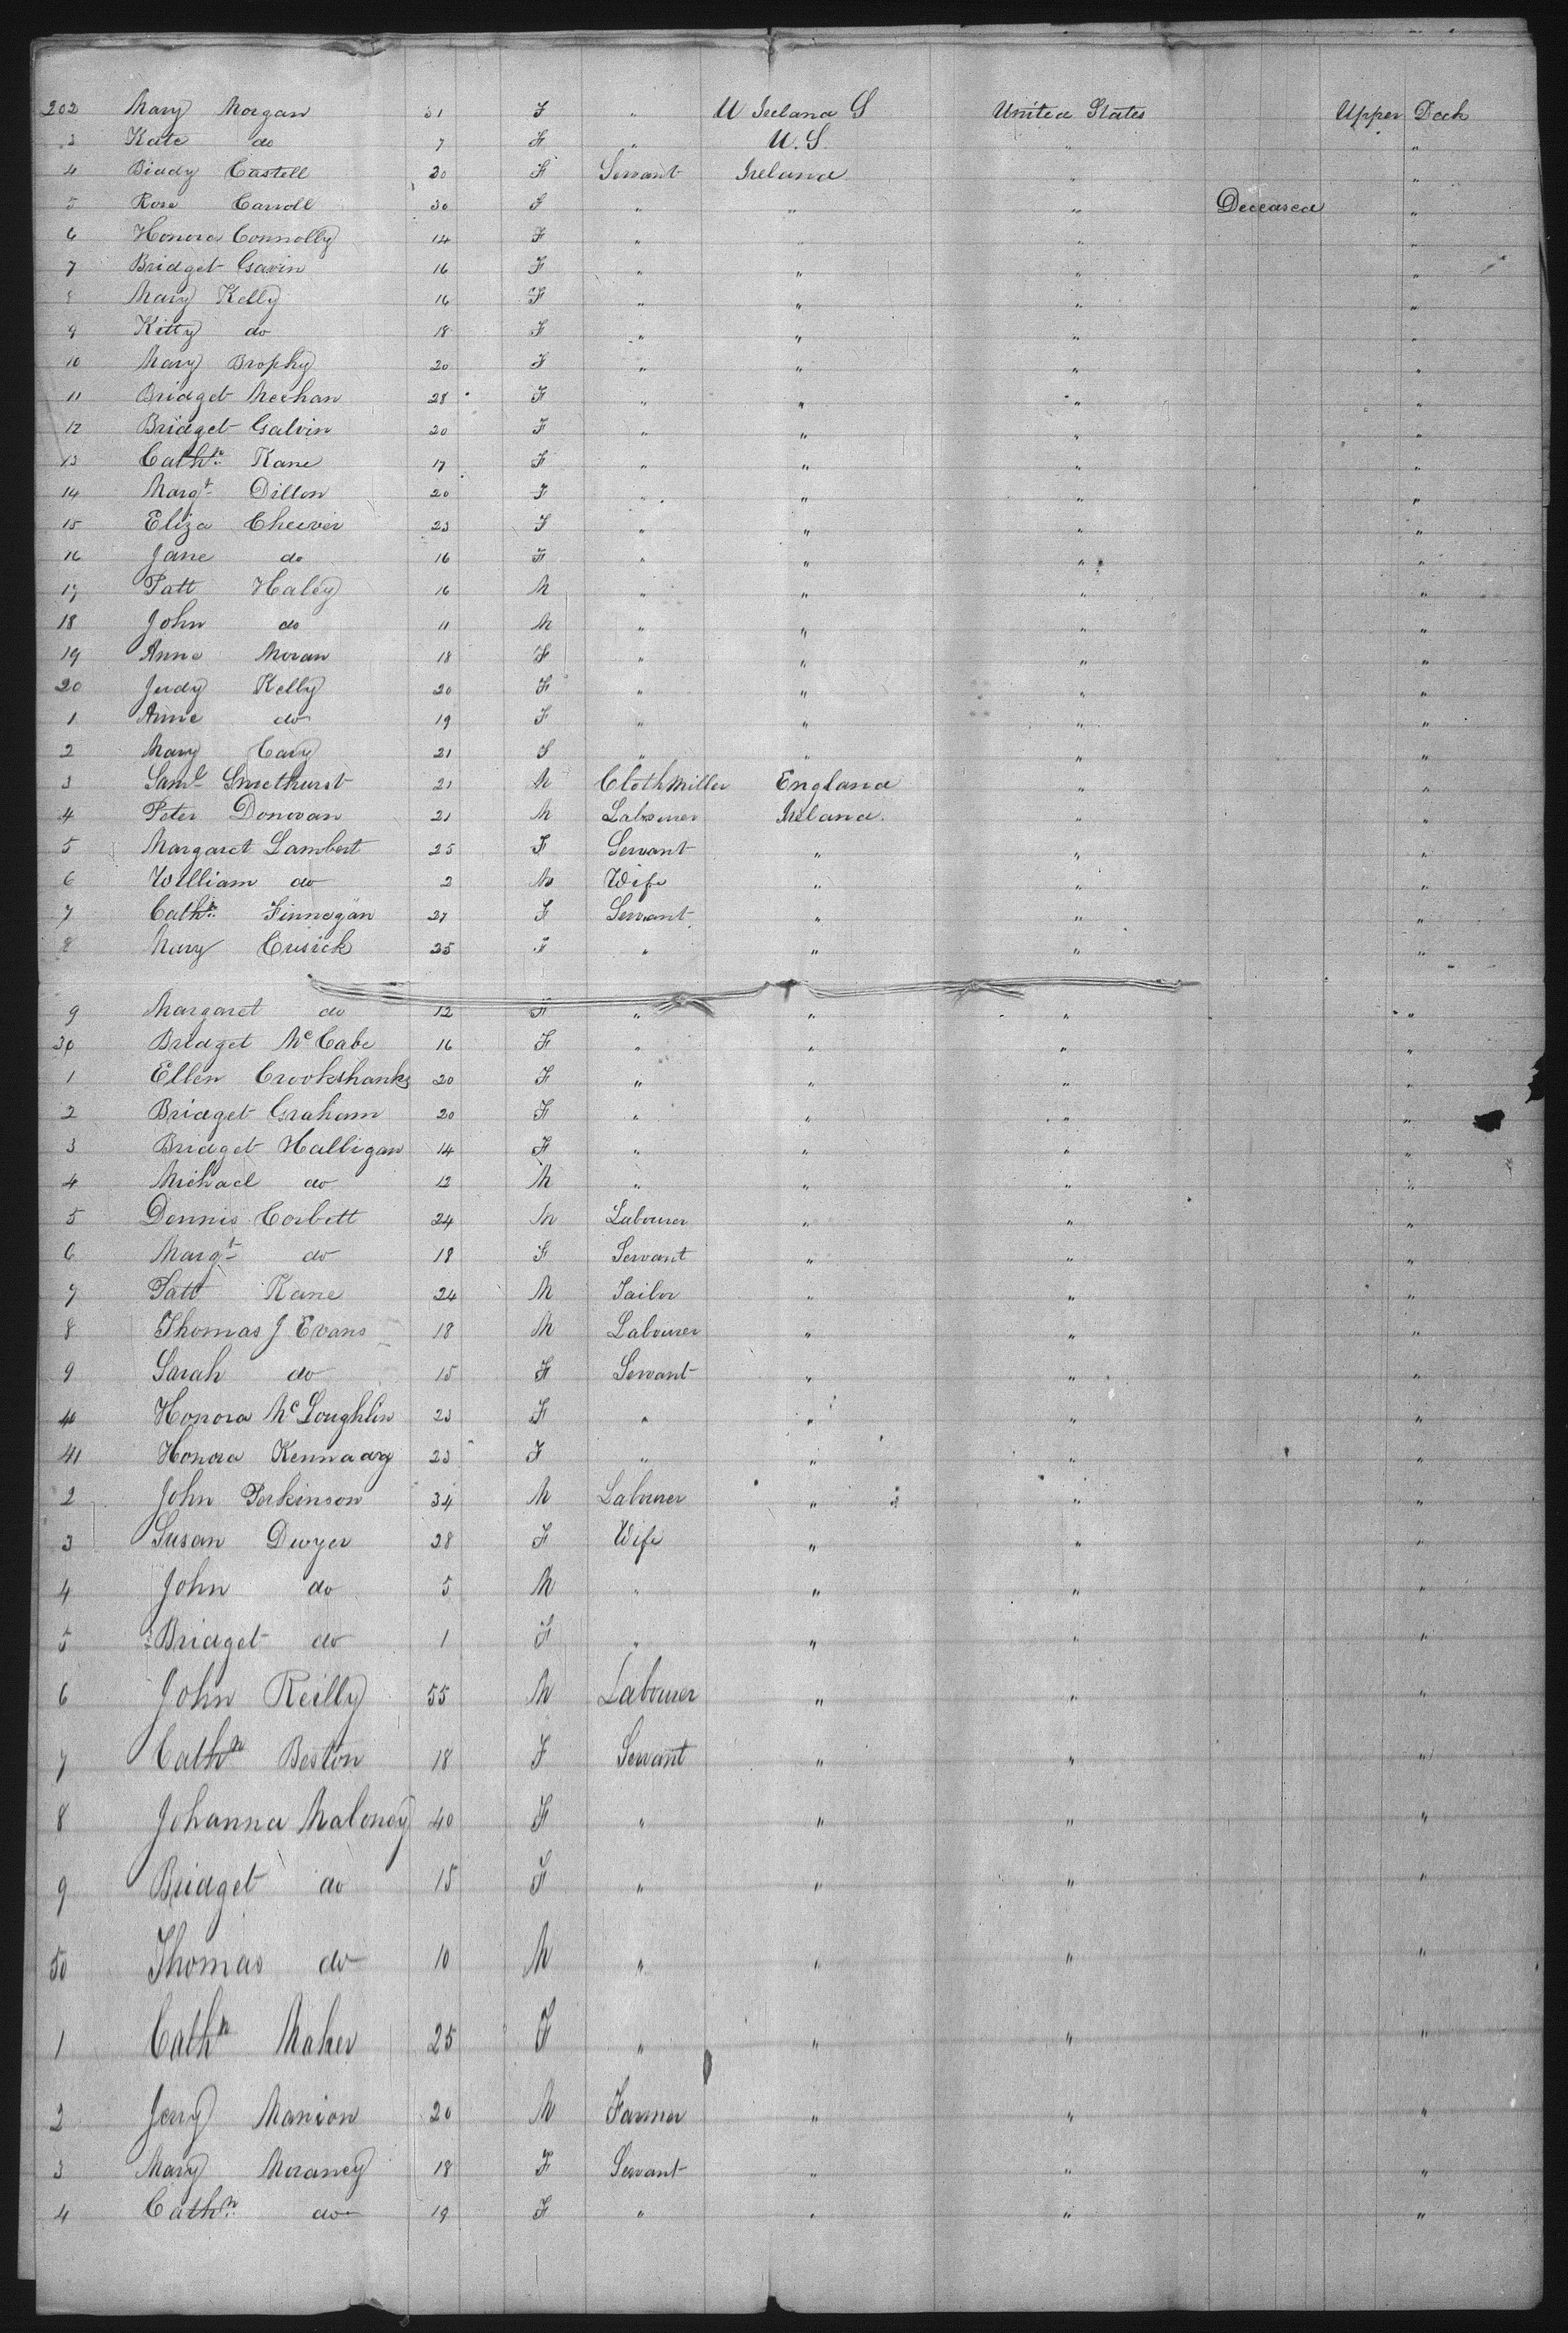 202 Mary Morgan 31 F " U Ireland S United States Upper Deck
3 Kate do 7 F " U.S. " "
4 Biddy Castell 20 F Servant Ireland " "
5 Rose Carroll 30 F " " " Deceased "
6 Honora Connolly 14 F " " " "
7 Bridget Gavin 16 F " " " "
8 Mary Kelly 16 F " " " "
9 Kitty do 18 F " " " "
10 Mary Brophy 20 F " " " "
11 Bridget Meehan 28 F " " " "
12 Bridget Galvin 20 F " " " "
13 Cathn Kane 17 F " " " "
14 Margt Dillon 20 F " " " "
15 Eliza Cheever 23 F " " " "
16 Jane do 16 F " " " "
17 Patt Haley 16 M " " " "
18 John do 11 M " " " "
19 Anne Moran 18 F " " " "
20 Judy Kelly 20 F " " " "
1 Anne do 19 F " " " "
2 Mary Cary 21 F " " " "
3 Saml Smethurst 21 M Cloth Miller England " "
4 Peter Donovan 21 M Labourer Ireland " "
5 Margaret Lambert 25 F Servant " " "
6 William do 2 M Wife " " "
7 Cathn Finnegan 27 F Servant " " "
8 Mary Cusick 25 F " " " "
9 Margaret do 12 F " " " "
30 Bridget McCabe 16 F " " " "
1 Ellen Crookshanks 20 F " " " "
2 Bridget Graham 20 F " " " "
3 Bridget Halligan 14 F " " " "
4 Michael do 12 M " " " "
5 Dennis Corbett 24 M Labourer " " "
6 Margt do 18 F Servant " " "
7 Patt Kane 24 M Tailor " " "
8 Thomas J Evans 18 M Labourer " " "
9 Sarah do 15 F Servant " " "
40 Honora McLoughlin 23 F " " " "
41 Honora Kennady 23 F " " " "
2 John Perkinson 34 M Labourer " " "
3 Susan Dwyer 28 F Wife " " "
4 John do 5 M " " " "
5 Bridget do 1 F " " " "
6 John Reilly 55 M Labourer " " "
7 Cathn Beston 18 F Servant " " "
8 Johanna Maloney 40 F " " " "
9 Bridget do 15 F " " " "
50 Thomas do 10 M " " " "
1 Cathn Maher 25 F " " " "
2 Jerry Manion 20 M Farmer " " "
3 Mary Moraney 18 F Servant " " "
4 Cathn do 19 F " " " "